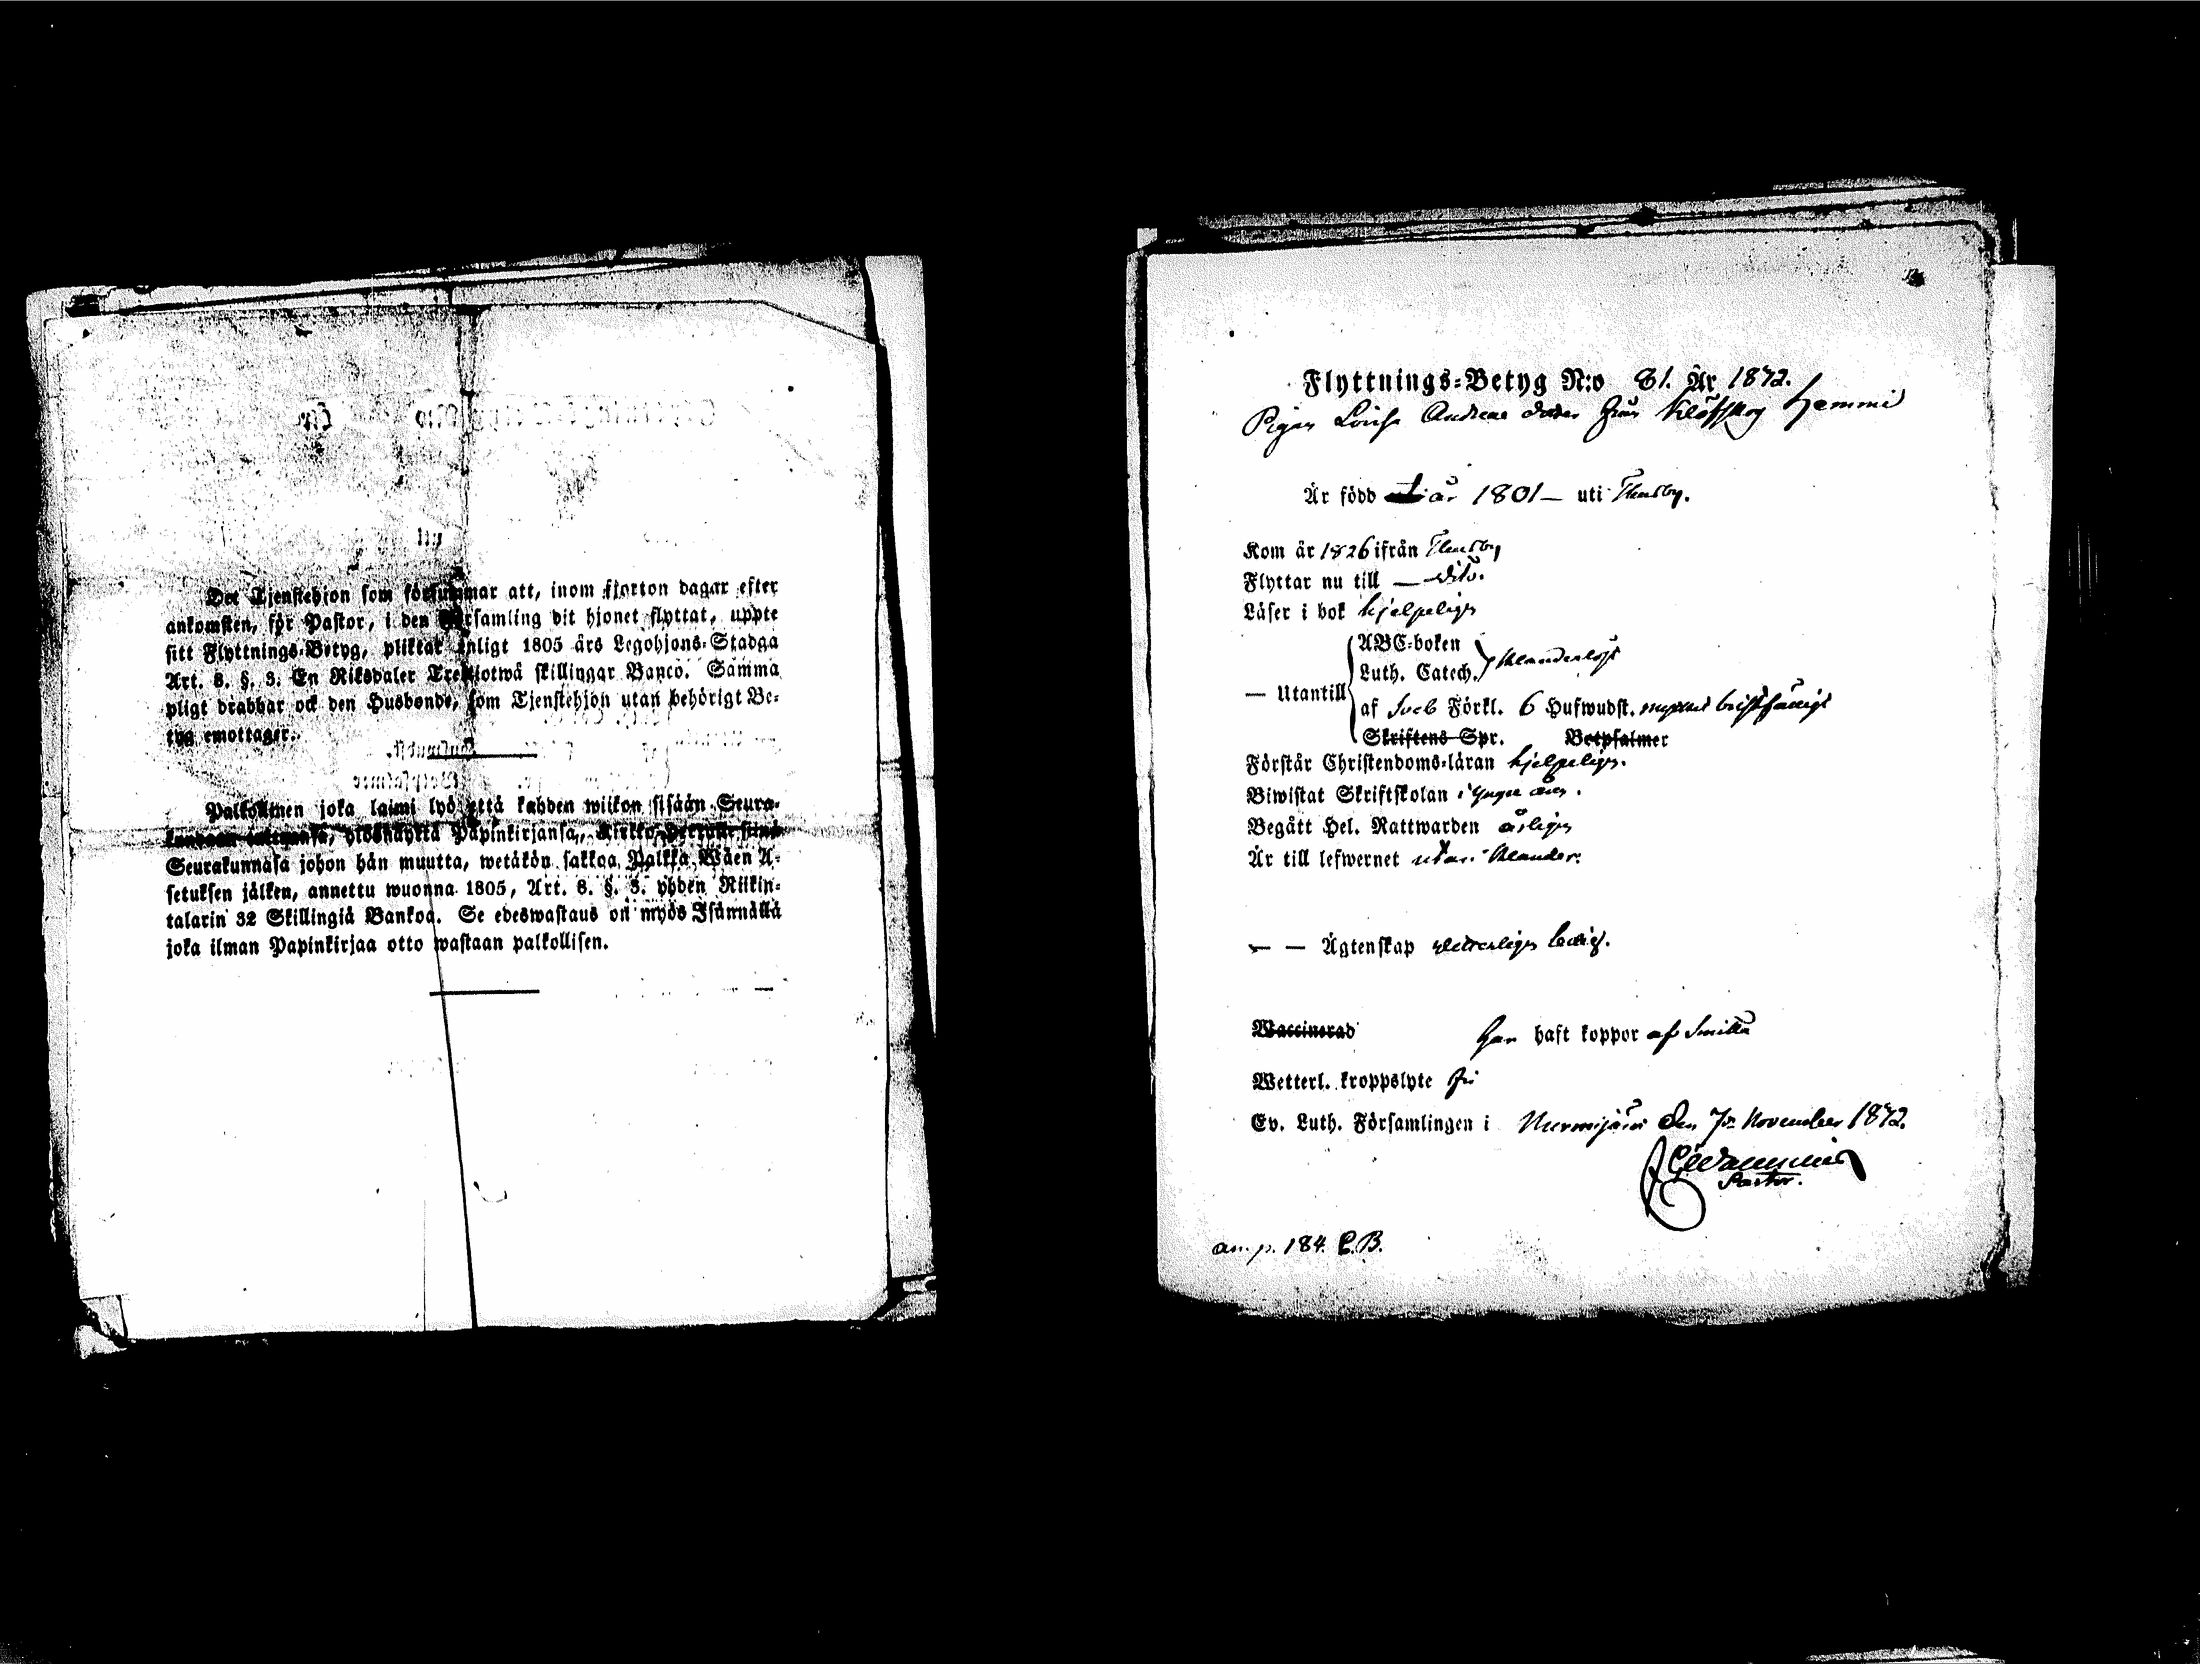 Det Tjenstehjon som försummar att, inom fjorton dagar efter
ankomsten, för Pastor, i den Församling dit hjonet flyttat, uppte
sitt Flyttnings-Betyg, pliktar enligt 1805 års Legohjons-Stadga
Art. 8. §. 3. En Riksdaler Trettiotwå skillingar Banco. Samma
pligt drabbar ock den Husbonde, som Tjenstehjon utan behörigt Be-
tyg emottager.
Palkollinen joka laimi lyö että kahden wiikon sisään Seura-
ylösnäyttä Papinkirjansa, Kirkko-Herralle siinä
Seurakunnasa johon hän muutta, wetäkön sakkoa Palkka Wäen A-
setuksen jälken, annettu wuonna 1805, Art. 8. §. 3. yhden Riikin-
talarin 32 Skillingiä Bankoa. Se edeswastaus on myös Isännällä
joka ilman Papinkirjaa otto wastaan palkollisen.
Flyttnings-Betyg N:o 81. År 1872.
Pigan Lovisa från Klöfskog Hemmi
Är född år 1801 — uti Thusby.
Kom år 1826 ifrån Thusby
Flyttar nu till — dito.
Läser i bok hjelpeligen
ABC-boken
Luth. Catech. klanderlöst
— Utantill
af Sveb Förkl. 6 Hufwudst. mycket bristfälligt
Skriftens Spr. Botpsalmer
Förstår Christendoms-läran hjelpeligen.
Biwistat Skriftskolan i yngre åren.
Begått Hel. Nattwarden årligen
Är till lefwernet utan klander.
— — Ägtenskap veterligen ledig.
Waccinerad Har haft koppor af Smitta
Wetterl. kroppslyte fri
Ev. Luth. Församlingen i Nurmijärvi den 7de November 1872.
Pastor.
an. p. 184. C.B.